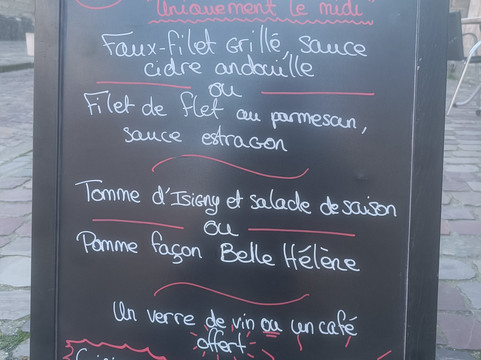 "Uniquement le midi"
Faux-filet grillé, sauce
cidre andouille
ou
Filet de flet au parmesan,
sauce estragon
Tomme d'Isigny et salade de saison
ou
Pomme façon Belle Hélène
Un verre de vin ou un café
offert